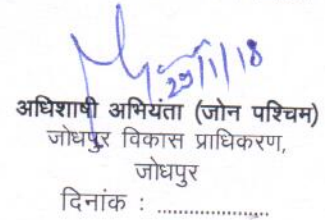 29/1/18
अधिशाषी अभियंता (जोन पश्चिम)
जोधपुर विकास प्राधिकरण,
जोधपुर
दिनांक : ....................